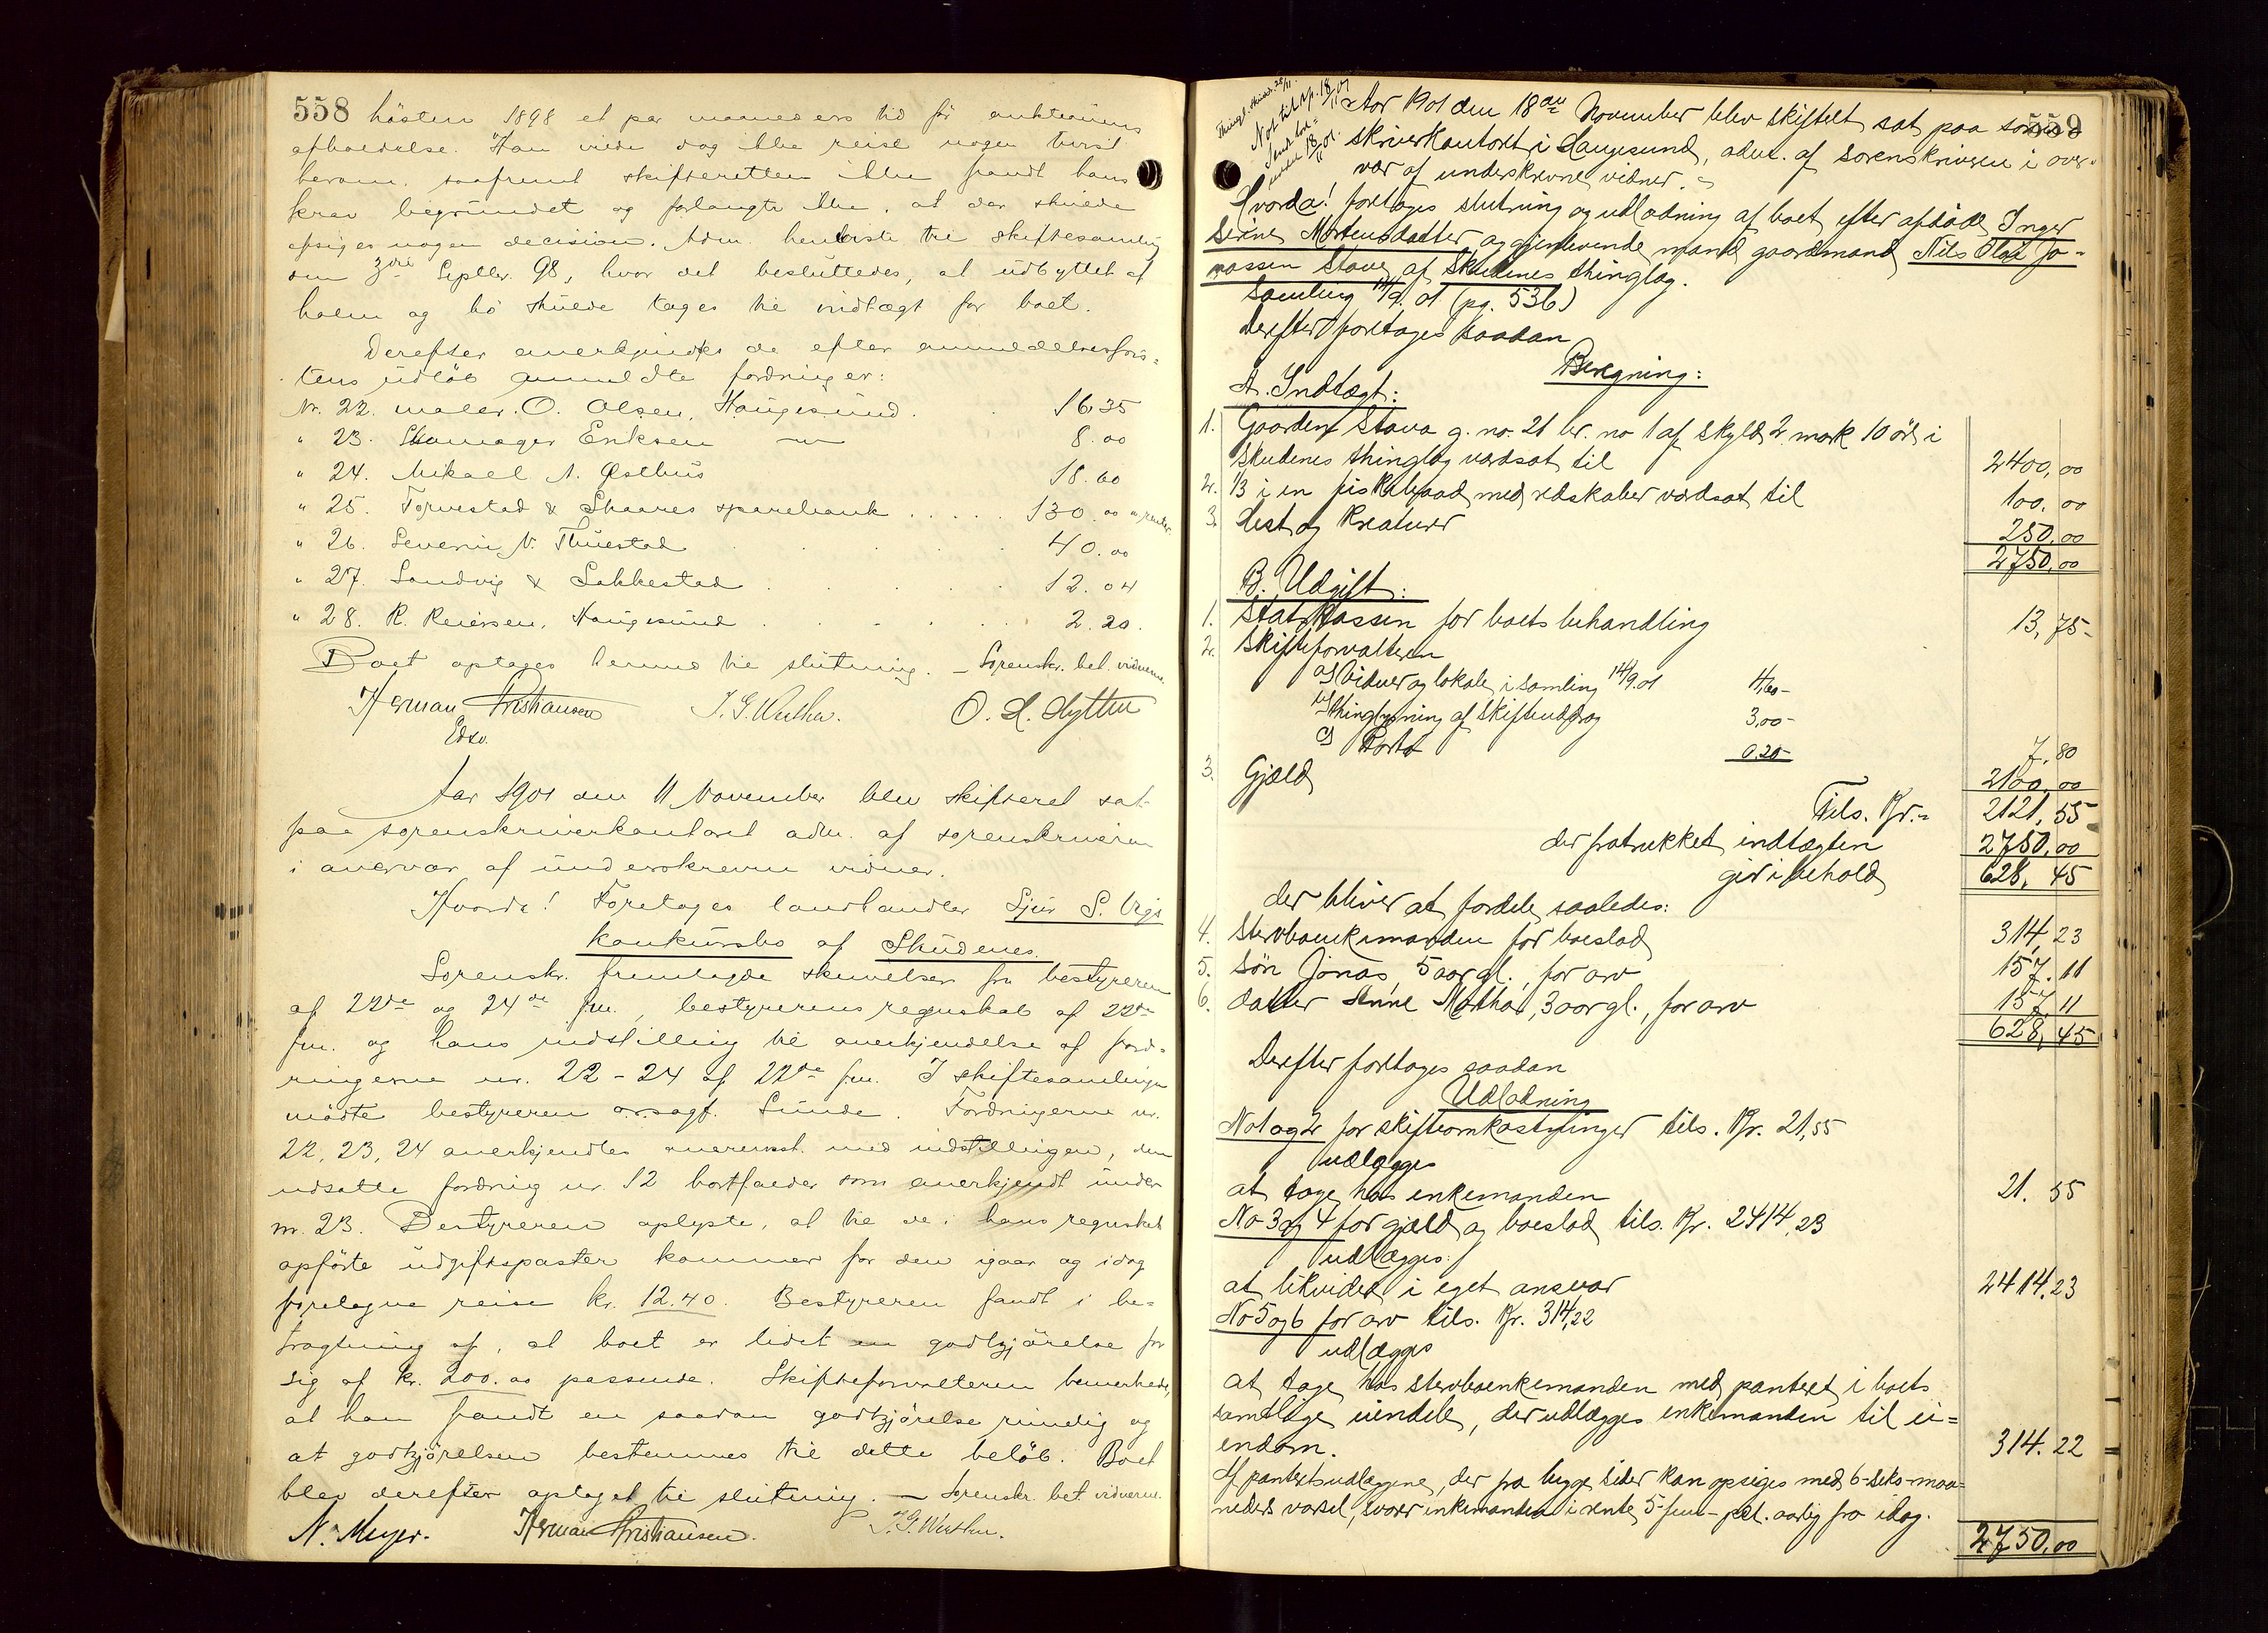 558
hösten 1898 et par maaneders tid før auktionens
afholdelse. Han vilde dog ikke reise nogen tvist
herom, saafremt skifteretten ikke fandt hans
krav begrundet og forlangte ikke, at der skulde
afsiges nogen decision. Adm. henviste til skiftesamling
om 3die Septbr. 98, hvor det besluttedes, at udbyttet af
halm og hö skulde tages til indtægt for boet.
Derefter anerkjendtes de efter anmeldelsesfris-
tens udlöb anmeldte fordringer:
Nr. 22. maler O. Olsen, Haugesund. 16.35
" 23. Skomager Eriksen — 8.00
" 24. Mikael A. Østhus 18.60
" 25. Torvestad & Skaares sparebank . . . . . 130.00 + renter
" 26. Severin N. Thuestad 40.00
" 27. Sandvig & Sakkestad 12.04
" 28. R. Reiersen, Haugesund 2.20.
Boet optages hermed til slutning. — Sorenskr. bet. vidnerne.
Herman Christiansen J. G. Wüthe. O. H. Hytten
Edsv.
Aar 1901 den 11 November blev skifteret sat
paa sorenskriverkontoret adm. af sorenskriveren
i overvær af underskrevne vidner.
Hvorda! Foretoges landhandler Sjur S.
konkursbo af Skudenes.
Sorenskr. fremlagde skrivelser fra bestyreren
af 22de og 24de fm., bestyrerens regnskab af 22de
fm. og hans indstilling til anerkjendelse af ford-
ringerne nr. 22 - 24 af 22de fm. I skiftesamlingen
mödte bestyreren orsagf. Sunde. Fordringerne nr.
22, 23, 24 anerkjendtes overensst. med indstillingen, den
udsatte fordring nr. 12 bortfalder som anerkjendt under
nr. 23. Bestyreren oplyste, at til de i hans regnskab
opförte udgiftsposter kommer for den igaar og idag
foretagne reise kr. 12.40. Bestyreren fandt i be-
tragtning af, at boet er lidet en godtgjörelse for
sig af kr. 200.00 passende. Skifteforvalteren bemerkede,
at han fandt en saadan godtgjörelse rimelig og
at godtgjörelsen bestemmes til dette belöb. Boet
blev derefter optaget til slutning. — Sorenskr. bet. vidnerne.
N. Meyer. Herman Christiansen. J. G. Wüthe.
559
Not. til tp. 18/11 01
Aar 1901 den 18de November blev skifteret sat paa soren-
skriverkontoret i Haugesund, adm. af sorenskriveren i over-
vær af underskrevne vidner.
Hvorda! foretages slutning og udlodning af boet efter afdöde Inger
Serine Mortensdatter og gjenlevende mand gaardmand Nils Olai Jo-
nassen Stave af Skudenes thinglag.
Samling 14/9. 01 (pg. 536)
Derefter foretages saadan
Beregning:
A. Indtægt:
1. Gaarden Stava g. no. 21 br. no 1 af skyld 2 mark 10 öre i
Skudenes thinglag værdsat til 2400,00
2. 1/3 i en fiskebaad med redskaber værdsat til 100,00
3. Hest og kreaturer 250,00
2750,00
B. Udgift:
1. Statskassen for boets behandling 13,75
2. Skifteforvalteren
a) Vidner og lokale i samling 14/9.01 4,60
b) thinglysning af skifteuddrag 3,00
c) Porto 0.20
7,80
3. Gjæld 2100,00
Tils. Kr. 2121,55
der fratrukket indtægten 2750,00
giver i behold 628,45
der bliver at fordele saaledes:
4. Stervboenkemanden for boeslod 314,23
5. Sön Jonas, 5 aar gl., for arv 157.11
6. Datter Anne Martha, 3 aar gl., for arv 157,11
628,45
Derefter foretages saadan
Udlodning
No 1 og 2 for skifteomkostninger tils. Kr. 21,55
udlægges
at tage hos enkemanden 21.55
No 3 og 4 for gjæld og boeslod tils. Kr. 2414,23
udlægges:
at likvidere i eget ansvar 2414.23
No 5 og 6 for arv tils. Kr. 314,22
udlægges
at tage hos stervboenkemanden med panteret i boets
samtlige eiendele, der udlægges enkemanden til ei-
endom. 314.22
Af panteretsudlæggene, der fra begge sider kan opsiges med 6-seks-maa-
neders varsel, svarer enkemanden i rente 5-fem-pct. aarlig fra idag.
2750,00